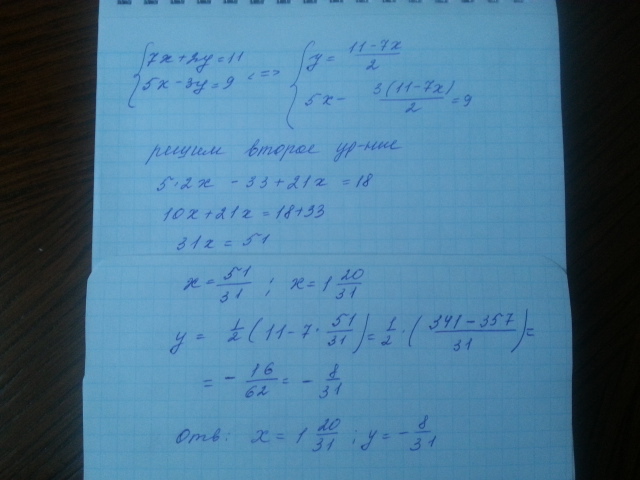 { 7x+2y=11
5x-3y=9 <=> { y= 11-7x / 2
5x- 3(11-7x) / 2 =9
решим второе ур-ние
5·2x - 33+21x =18
10x+21x=18+33
31x = 51
x= 51/31 ; x=1 20/31
y = 1/2 (11-7· 51/31)= 1/2 ·( 341-357 / 31 )=
= - 16/62 = - 8/31
Отв: x=1 20/31 ; y=- 8/31